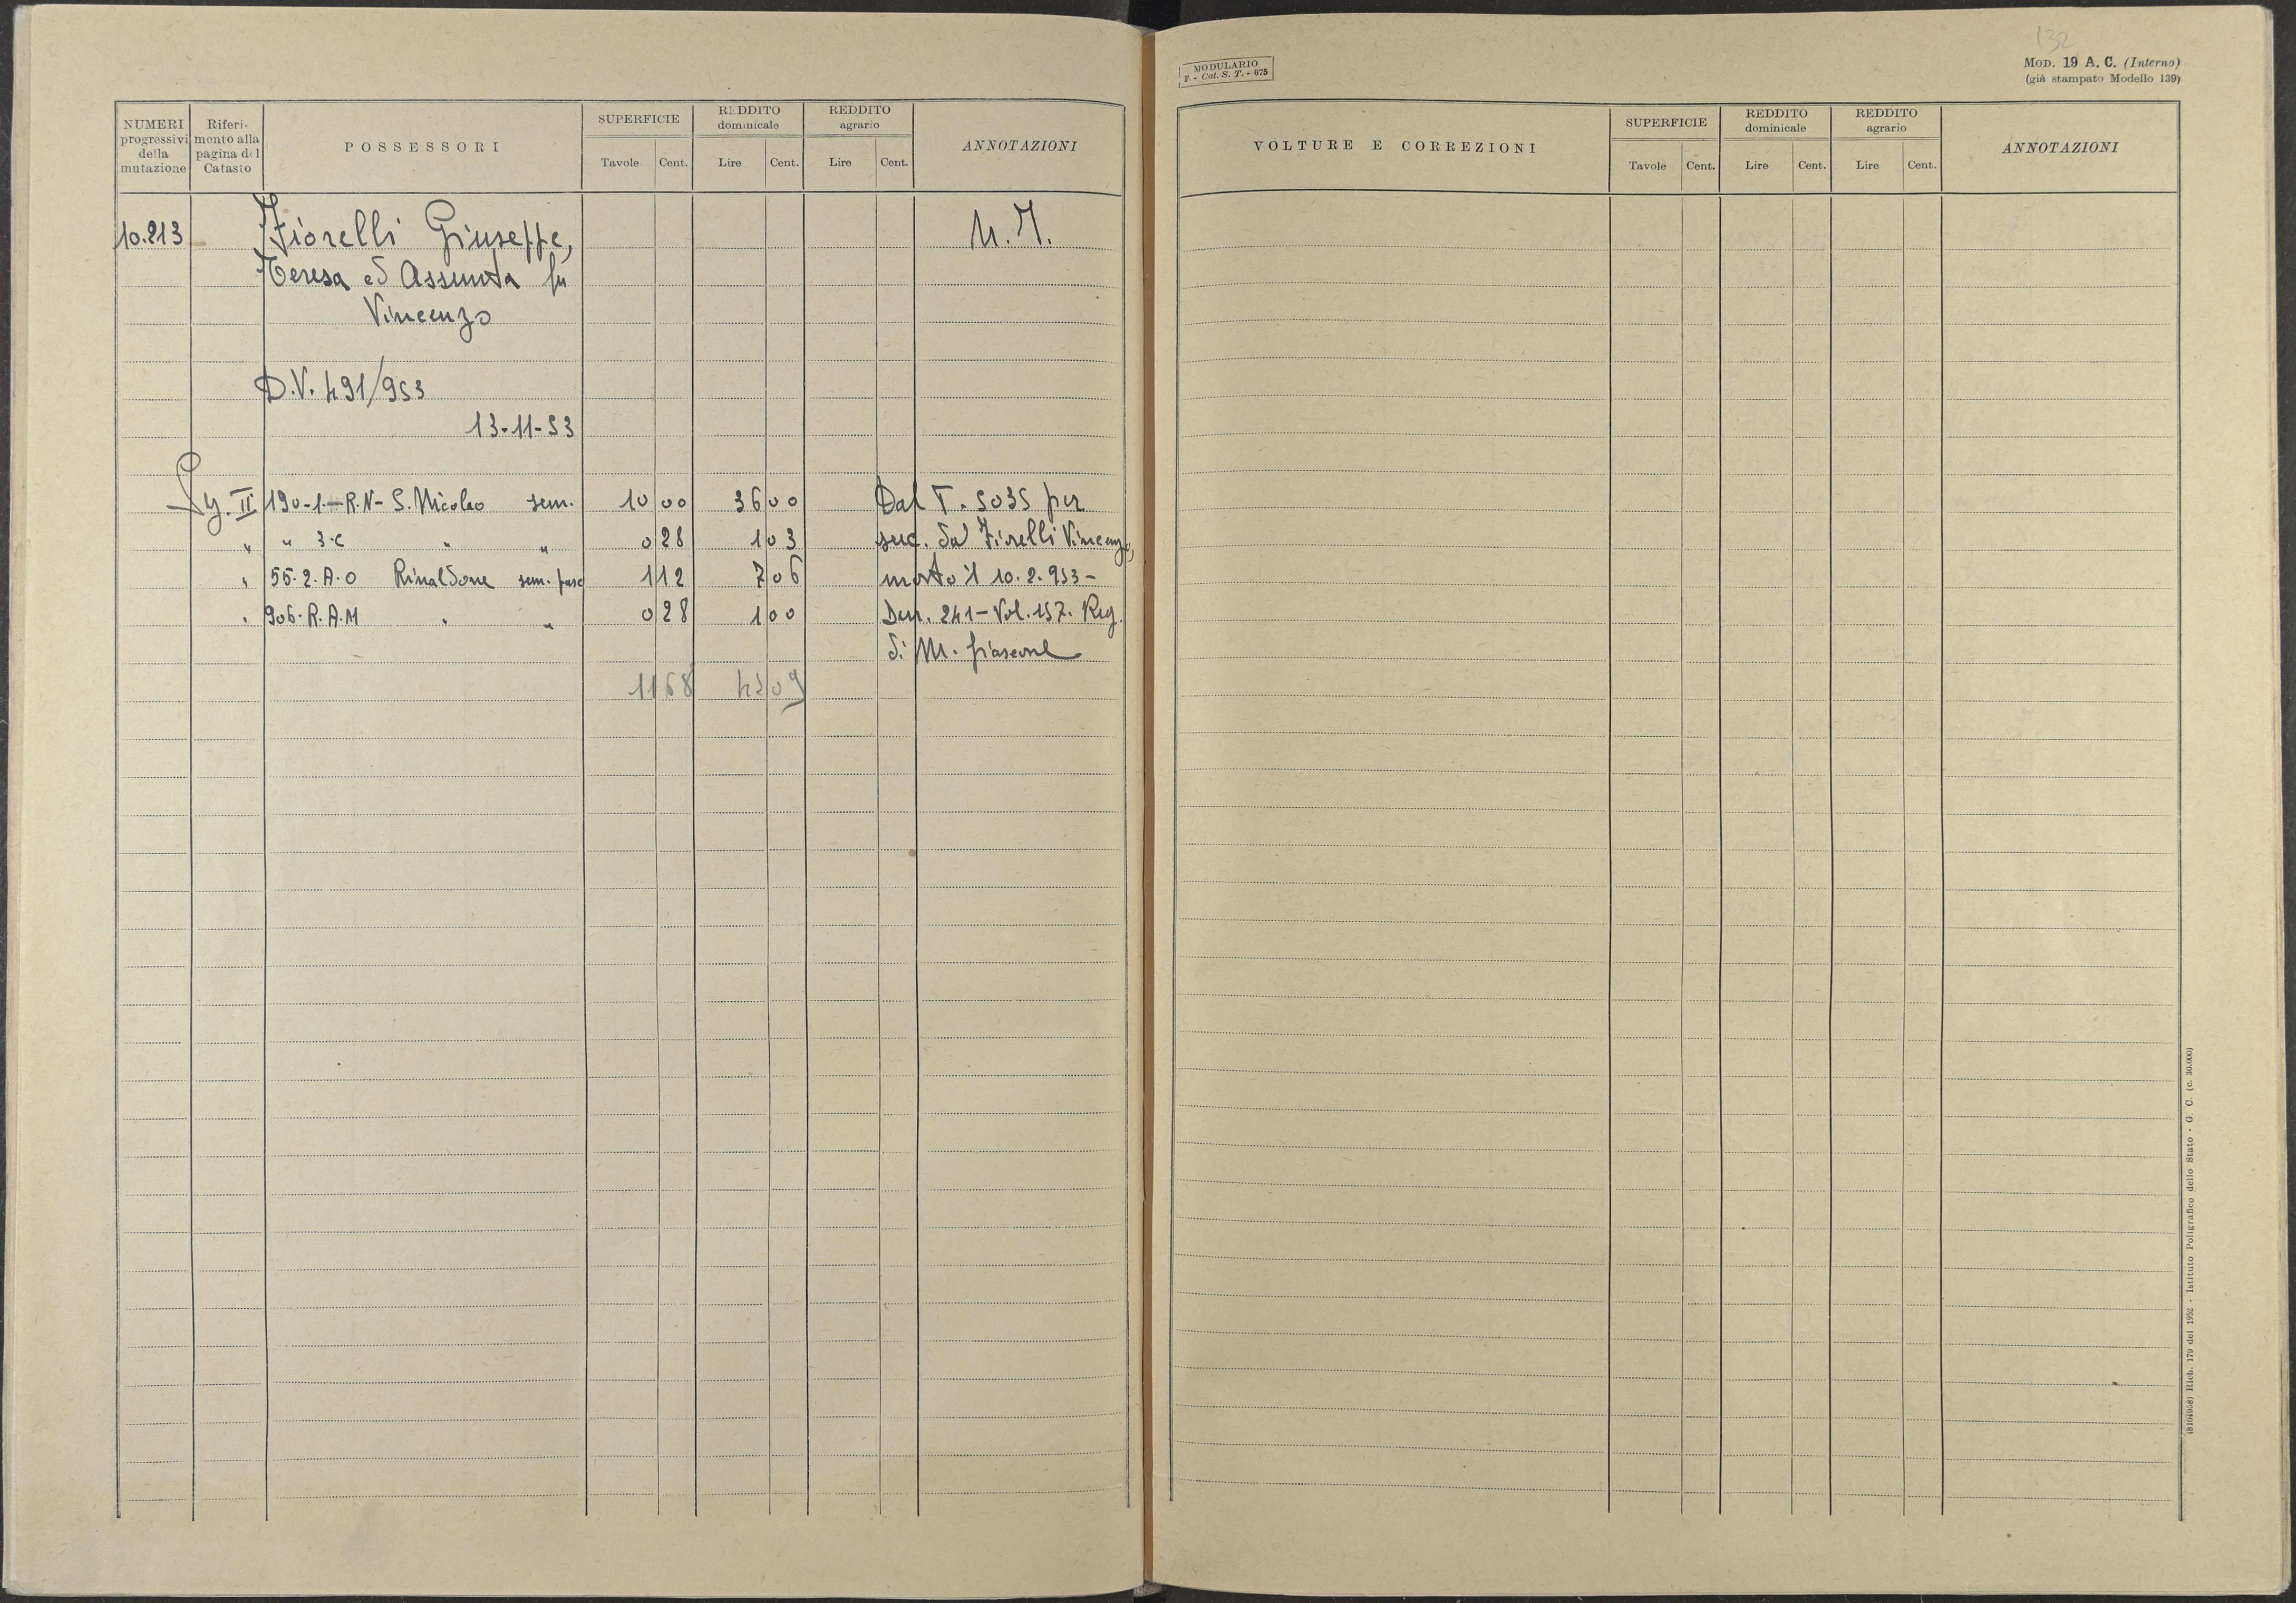 NUMERI progressivi della mutazione
Riferimento alla pagina del Catasto
POSSESSORI
SUPERFICIE
Tavole Cent.
REDDITO dominicale
Lire Cent.
REDDITO agrario
Lire Cent.
ANNOTAZIONI
10.213 Fiorelli Giuseppe,
Teresa ed Assunta fu
Vincenzo
D.V. 491/953
13-11-53
II 190-1-R.N- S. Nicolao sem. 10 00 36 00 Dal T. 5035 per
" " 3-C " " 0 28 1 03 succ. da Fiorelli Vincenzo,
" 55-2-A-O Rinaldone sem. pasc 1 12 7 06 morto il 10.2.953-
" 906-R.A.M " " 0 28 1 00 Den. 241-Vol. 157. Reg.
di M. fiascone
11 68 45 09
MODULARIO
F. - Cat. S. T. - 675
132
MOD. 19 A. C. (Interno)
(già stampato Modello 139)
VOLTURE E CORREZIONI
SUPERFICIE
Tavole Cent.
REDDITO dominicale
Lire Cent.
REDDITO agrario
Lire Cent.
ANNOTAZIONI
(8104968) Rich. 179 del 1952 - Istituto Poligrafico dello Stato - G. C. (c. 30.000)